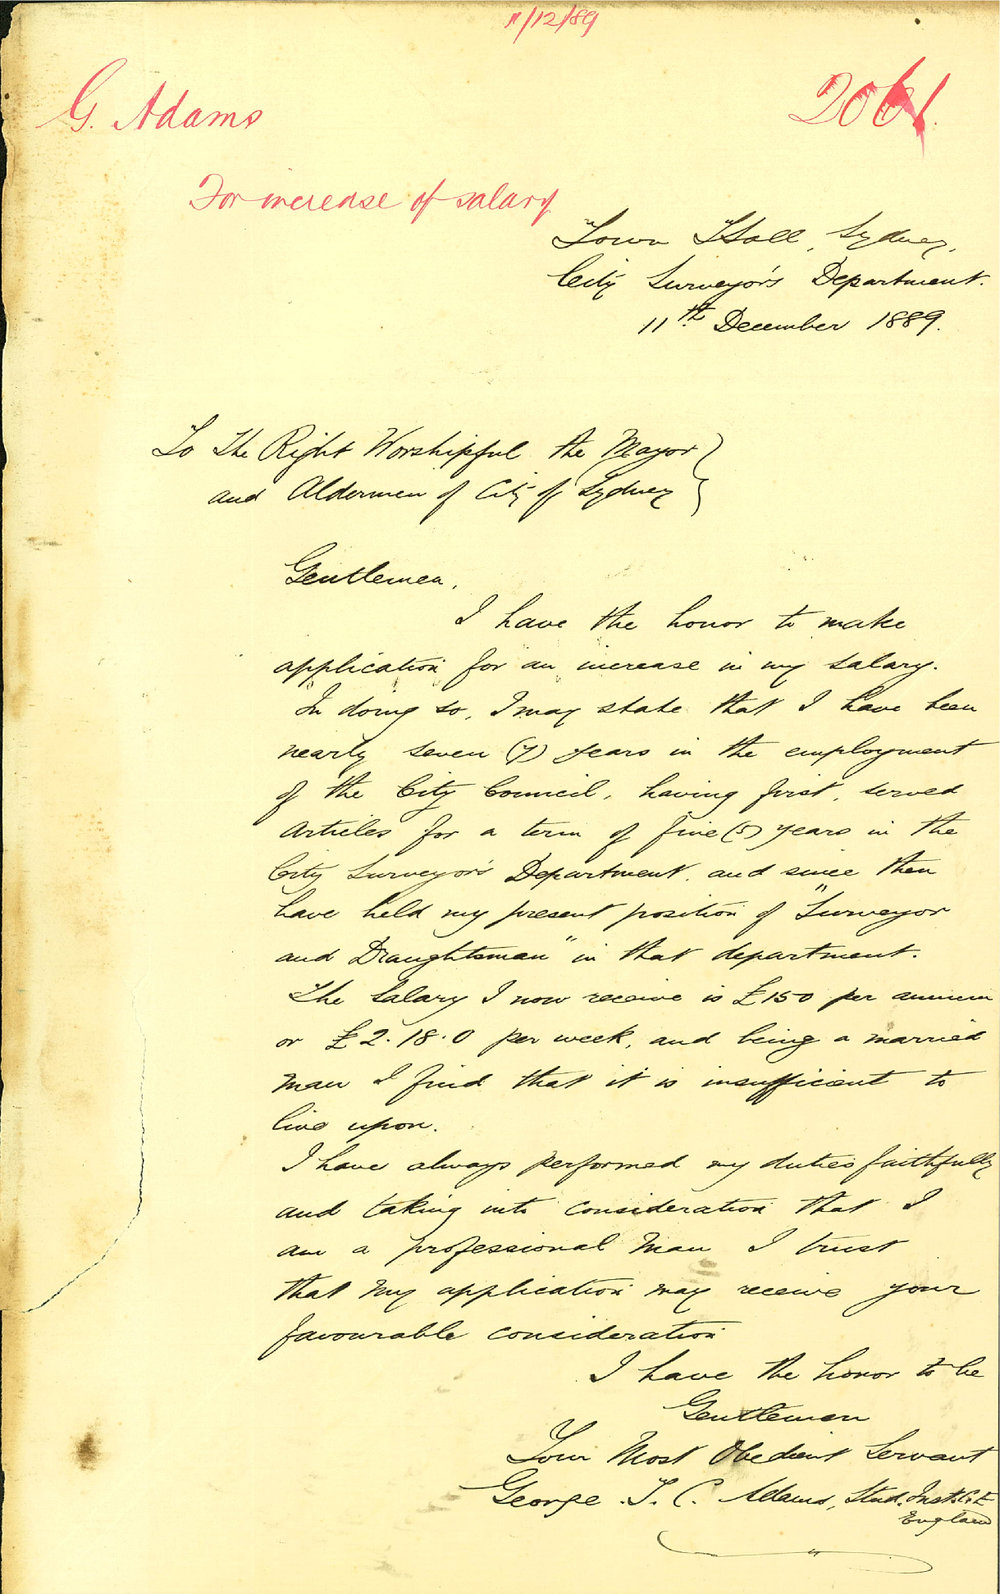 11/12/89
G. Adams
2061.
For increase of salary
Town Hall, Sydney,
City Surveyor's Department.
11th December 1889.
To The Right Worshipful the Mayor
and Aldermen of City of Sydney
Gentlemen,
I have the honor to make
application for an increase in my salary.
In doing so, I may state that I have been
nearly seven (7) years in the employment
of the City Council, having first, served
Articles for a term of five (5) years in the
City Surveyor's Department, and since then
have held my present position of "Surveyor
and Draughtsman" in that department.
The Salary I now receive is £150 per annum
or £2.18.0 per week, and being a married
man I find that it is insufficient to
live upon.
I have always performed my duties faithfully
and taking into consideration that I
am a professional man I trust
that my application may receive your
favourable consideration
I have the honor to be
Gentlemen
Your Most Obedient Servant
George . T. C. Adams, Stud. Inst. C.E
England